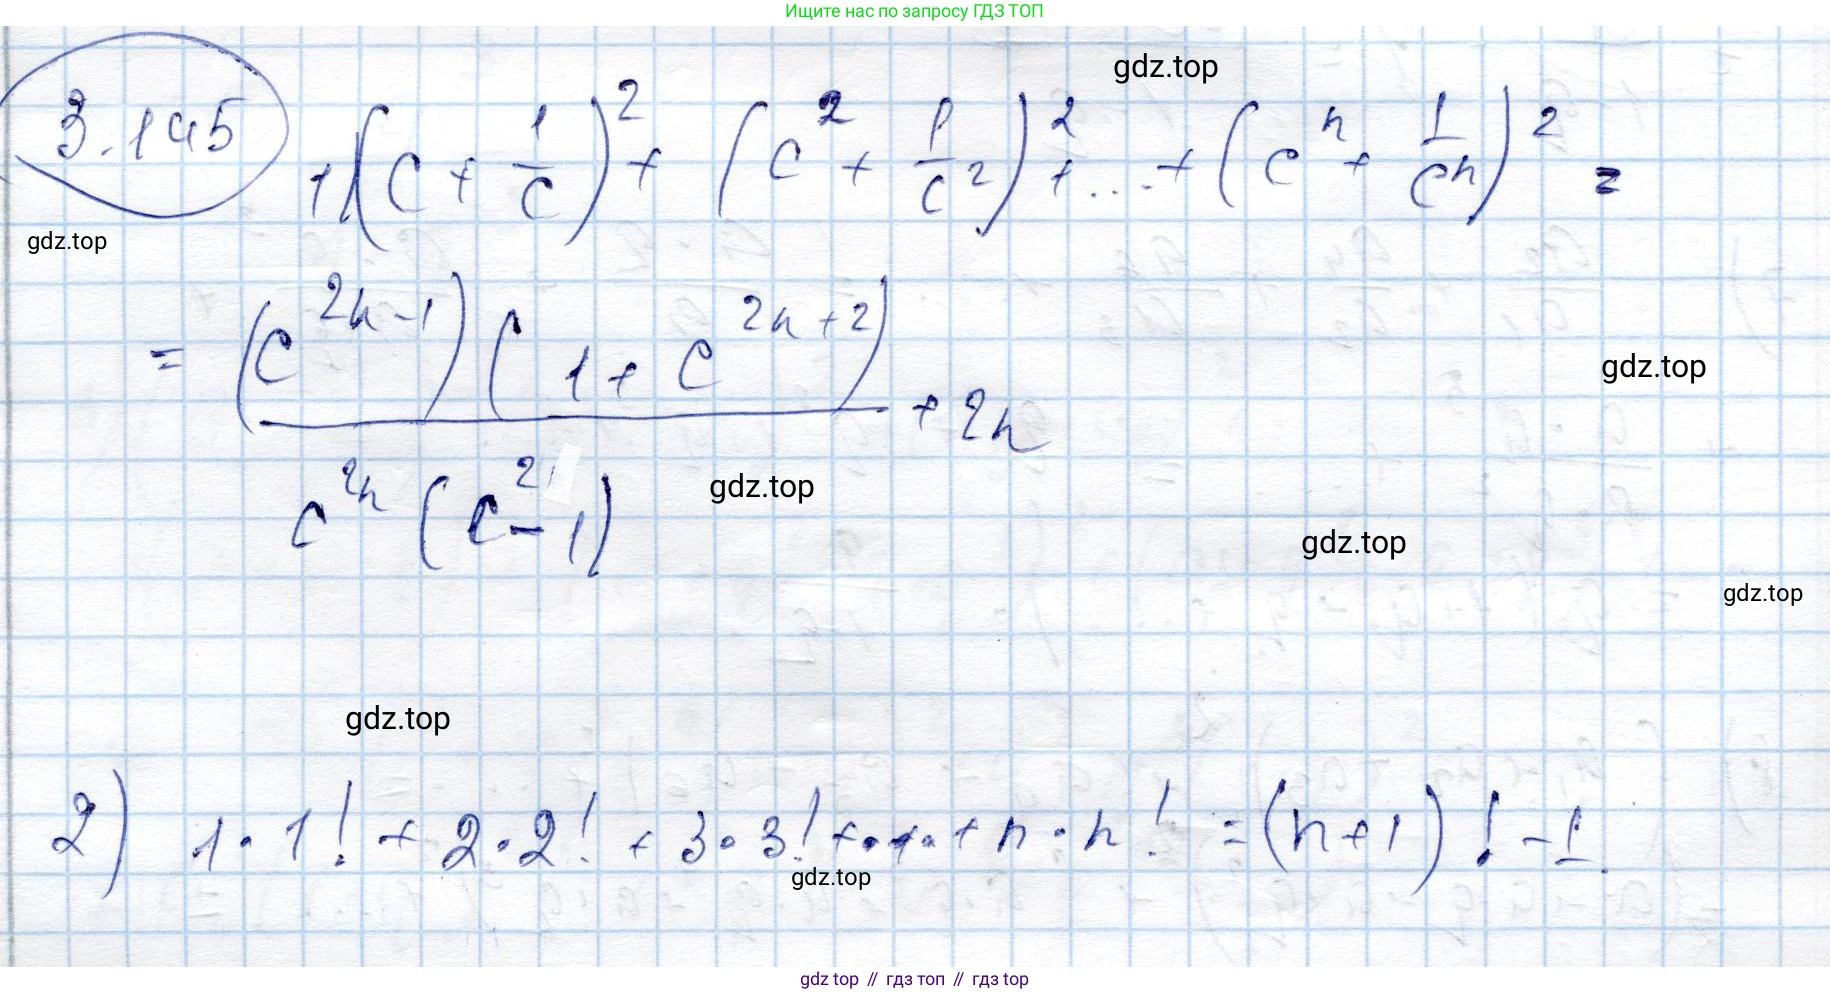 Ищите нас по запросу ГДЗ ТОП
gdz.top
3.145
1) (c + 1/c)² + (c² + 1/c²)² + ... + (cⁿ + 1/cⁿ)² =
gdz.top
= (c²ⁿ⁻¹)(1 + c²ⁿ⁺²) / c²ⁿ(c² - 1) + 2n
gdz.top
gdz.top
gdz.top
gdz.top
gdz.top
2) 1·1! + 2·2! + 3·3! + ... + n·n! = (n+1)! - 1.
gdz.top
gdz top // гдз топ // гдз top